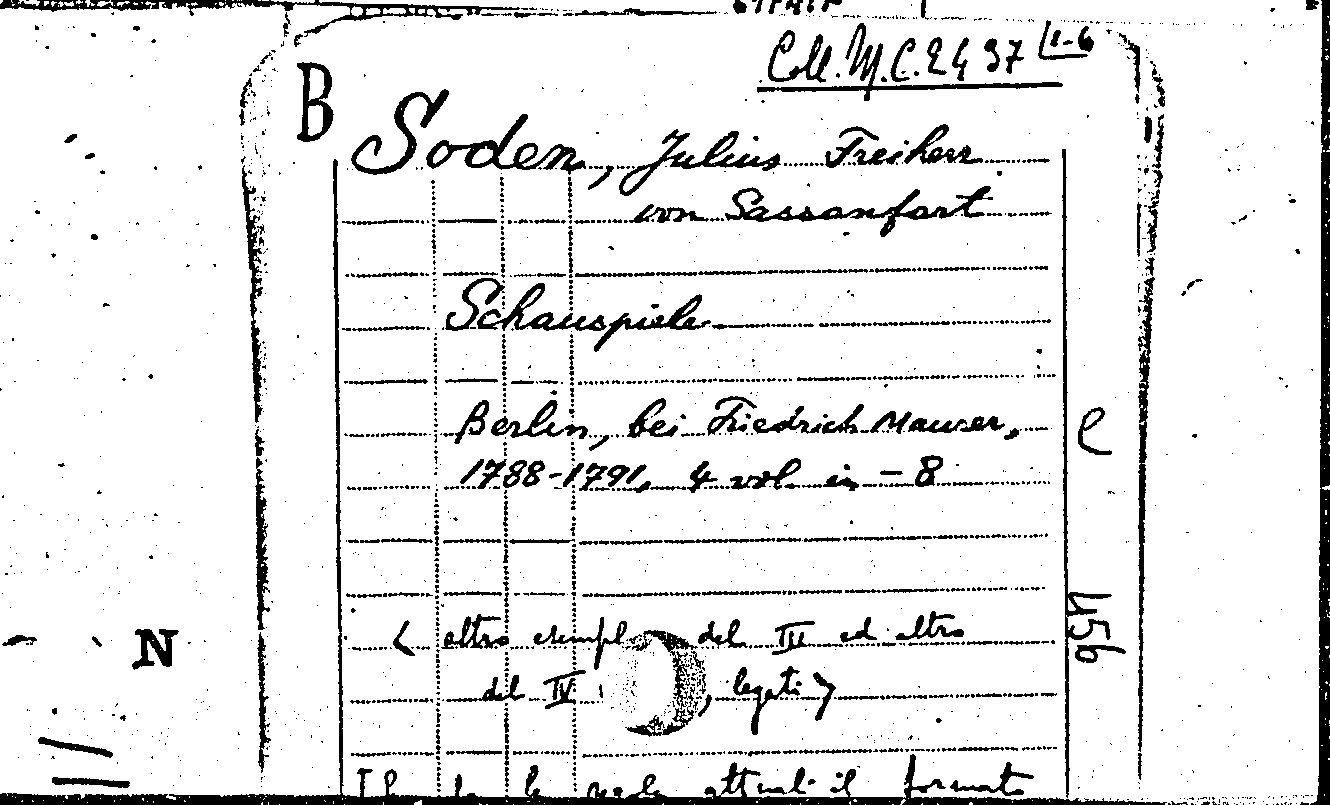 Coll. M.C. 2497 1-6
B
Soden, Julius Freiherr
von Sassanfart
Schauspiele
Berlin, bei Friedrich Maurer,
1788-1791, 4 vol. in-8
e
456
< altro esempl del III ed altro
del IV , legati >
N
il formato